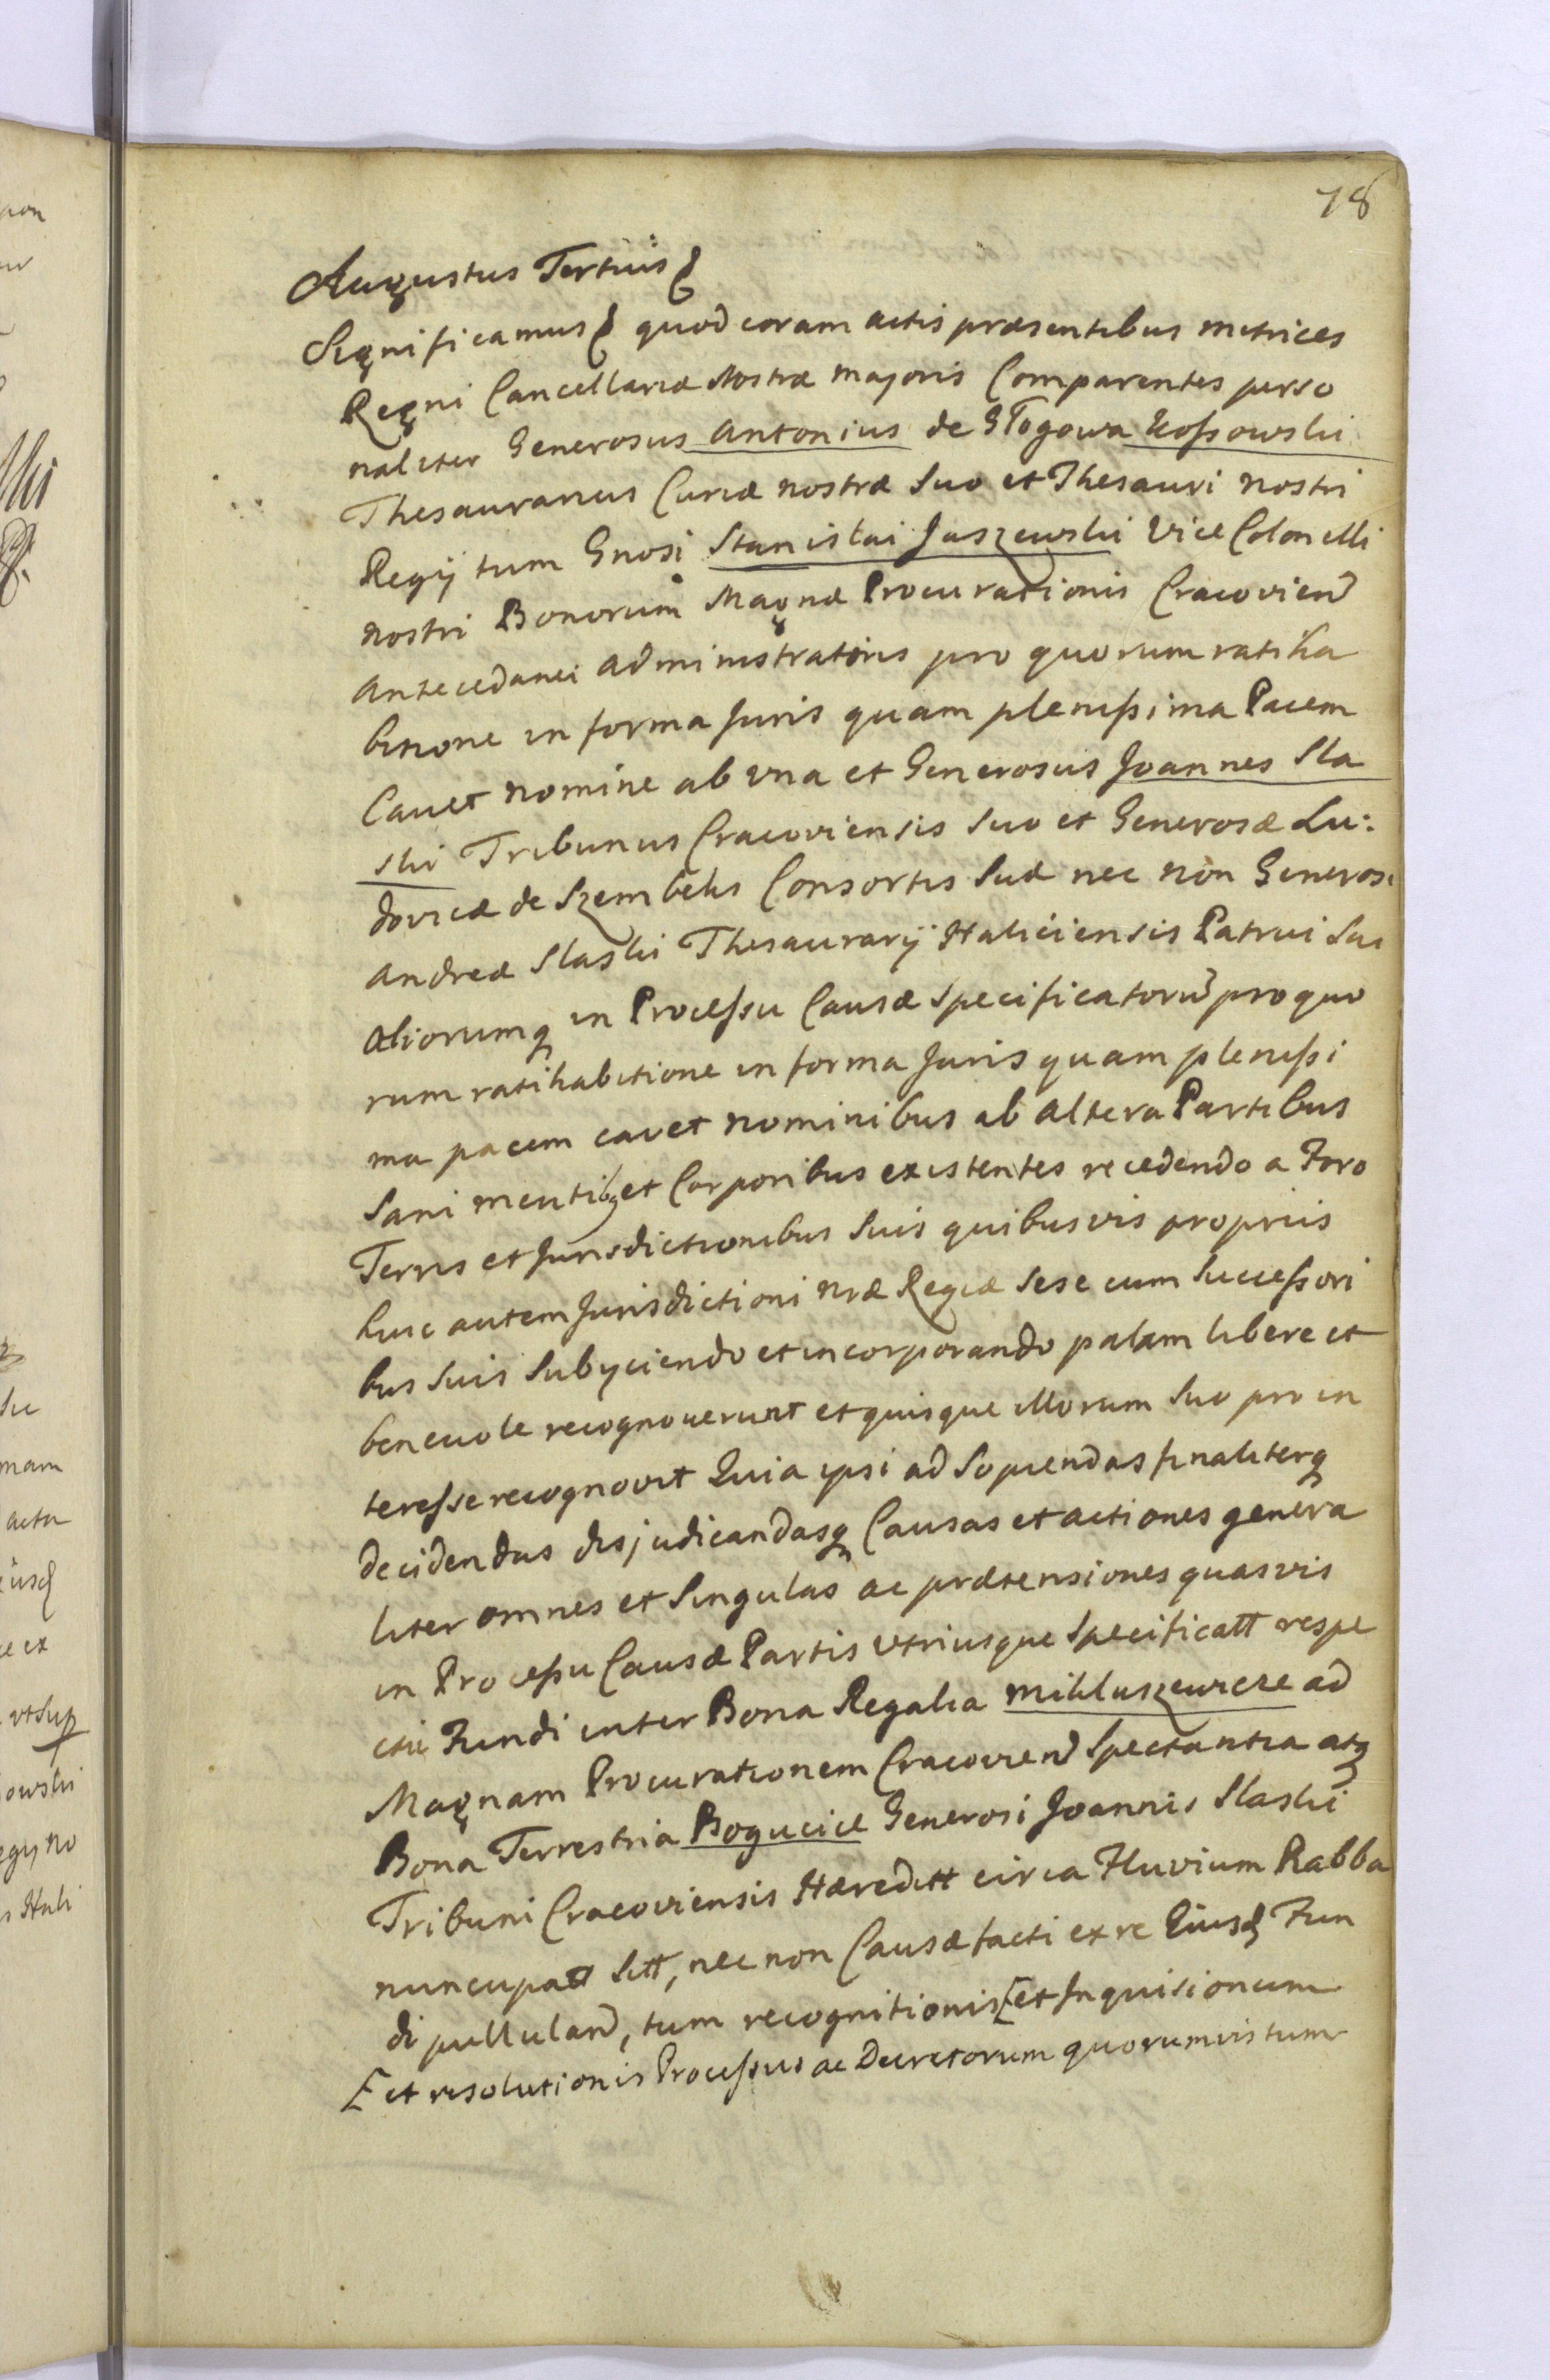 78
Augustus Tertius
Significamus quod coram actis præsentibus metrices
Regni Cancellariæ Nostræ majoris Comparentes perso
naliter Generosus Antonius de Głogowa Kossowski
Thesaurarius Curiæ nostræ Suo et Thesauri nostri
Regij tum Gnosi Stanislai Jaszewski Vice Colonelli
nostri Bonorum Magnæ Procurationis Cracovien
Antecedanei Administratoris pro quorum ratiha
bitione in forma Juris quam plenissima Pacem
Cavet nomine ab una et Generosus Joannes Sla
ski Tribunus Cracoviensis Suo et Generosæ Lu:
dovicæ de Szembeks Consortis Suæ nec non Generosi
Andreæ Slaski Thesaurarij Haliciensis Patrui Sui
Aliorumq in Processu Causæ Specificatorū pro quo
rum ratihabitione in forma Juris quam plenissi
ma pacem cavet nominibus ab Altera Partibus
Sani mentibq et Corporibus existentes recedendo a Foro
Terris et Jurisdictionibus Suis quibusvis propriis
huic autem Jurisdictioni nræ Regiæ Sese cum Successori
bus Suis Subyciendo et incorporando palam libere et
benevole recognoverunt et quisque illorum Suo pro in
teresse recognovit Quia ipsi ad Sopiendas finaliterq
decidendas disjudicandasq Causas et actiones genera
liter omnes et Singulas ac prætensiones quasvis
in Processu Causæ Partis Utriusque Specificatt respe
ctu Fundi inter Bona Regalia Mikluszewice ad
Magnam Procurationem Cracovien Spectantia atq
Bona Terrestria Bogucice Generosi Joannis Slaski
Tribuni Cracoviensis Hæreditt circa Fluvium Rabba
nuncupatt Sitt, nec non Causæ facti ex re Eiusd Fun
di pullulan, tum recognitionis [et Inquisicionum
[et resolutionis Processus ac Decretorum quorumvis tum